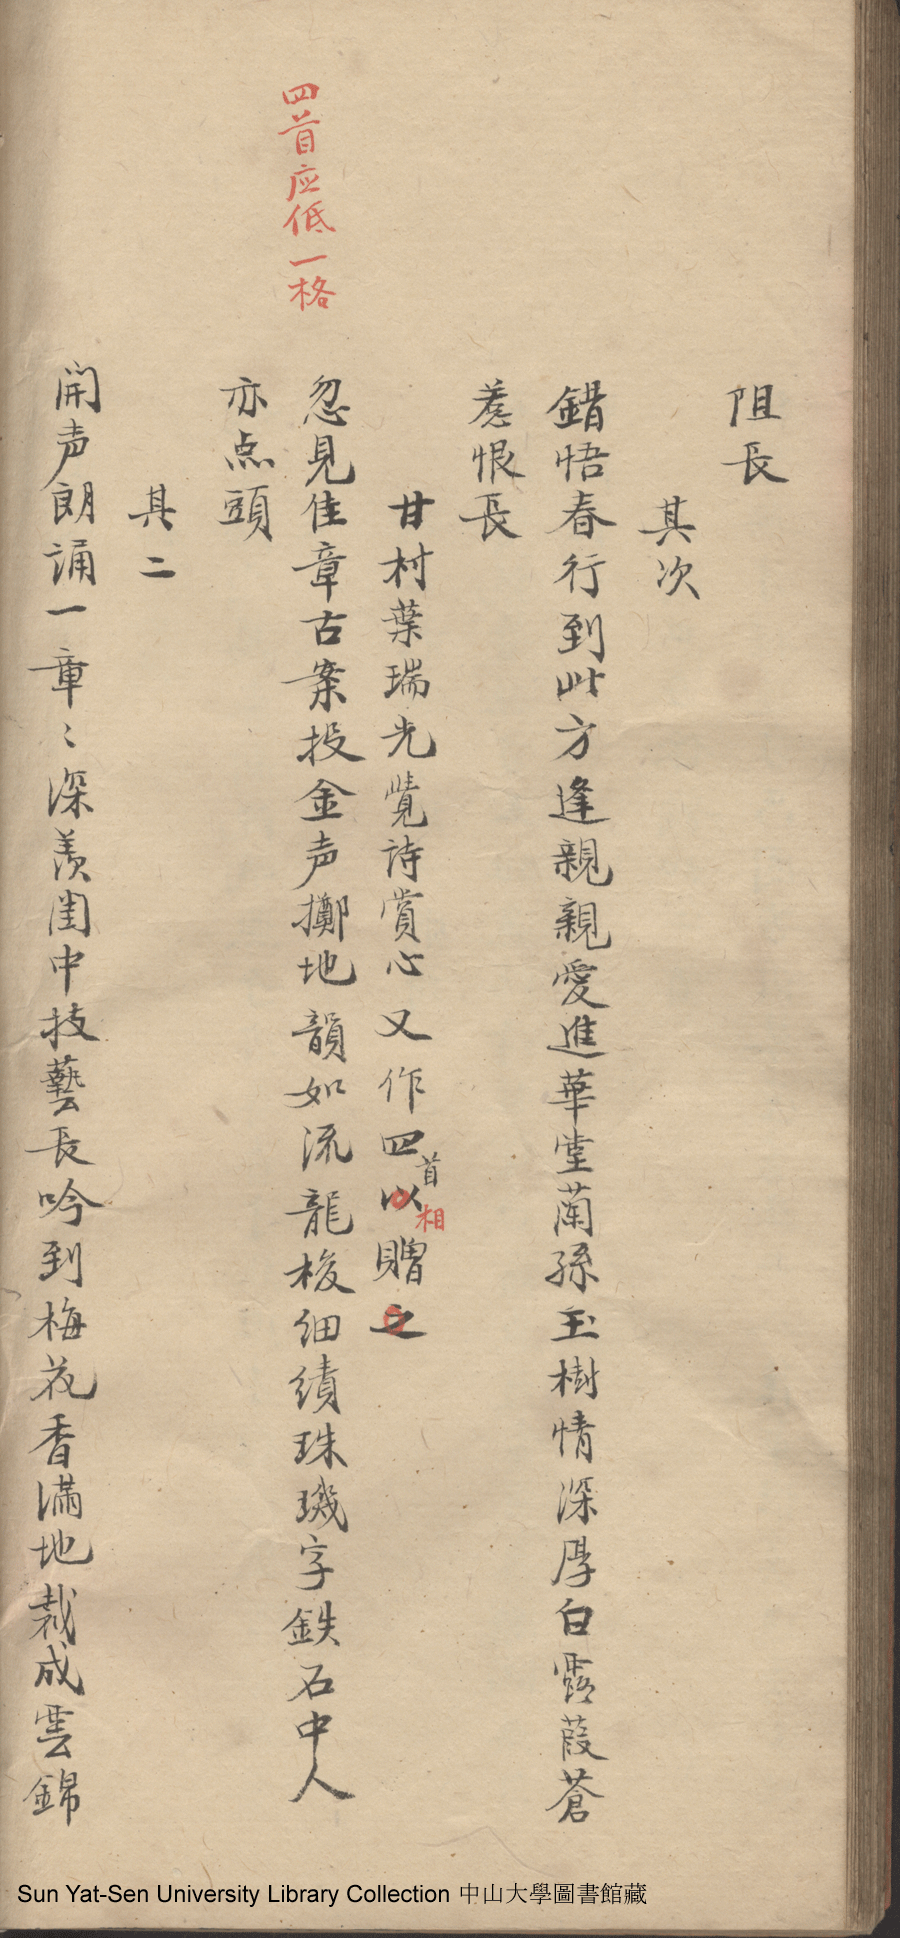 阻長
其次
錯悟春行到此方逢親親愛進華堂蘭孫玉樹情深厚白露葭蒼
惹恨長
甘村葉瑞光覽詩賞心又作四首以相贈之
四首应低一格
忽見佳章古案投金声擲地韻如流龍梭细績珠璣字鉄石中人
亦点頭
其二
開声朗誦一章〻深羨閨中技藝長吟到梅花香滿地裁成雲錦
Sun Yat-Sen University Library Collection 中山大學圖書館藏